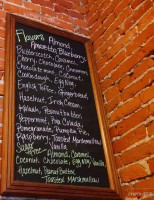 Flavors Almond,
Amaretto, Blueberry,
Butterscotch, Caramel,
Cherry, Chocolate, Cinnamon,
Chocolate mint, Coconut,
Cookiedough, Egg Nog,
English Toffee, Gingerbread,
Hazelnut, Irish Cream,
Peanut butter,
Peppermint, Pina Colada,
Pomegranate, Pumpkin Pie,
Raspberry, Toasted Marshmallow
Vanilla
Sugar Free - Almond, Caramel,
Coconut, Chocolate, Egg Nog, Vanilla
Hazelnut, Peanut Butter,
Toasted Marshmallow